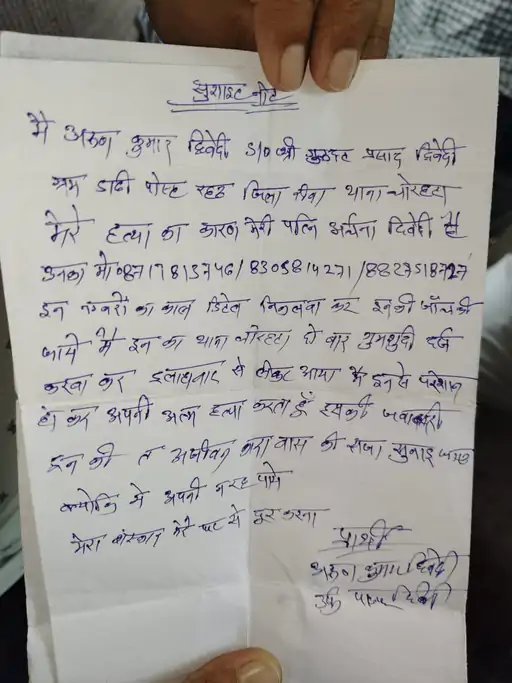 सुसाइट नोट
मै अरुण कुमार द्विवेदी S/O श्री गुरुदत्त प्रसाद द्विवेदी
ग्राम डाढी पोस्ट रहट जिला रीवा थाना चोरहटा
मेरे हत्या का कारण मेरी पत्नि अर्चना दिवेदी है
उनका मो० 8717813746/8305814271/8827518727
इन नम्बरों का काल डिटेल निकलवा कर इनकी जाँच की
जाये मै इन का थाना चोरहटा दो बार गुमशुदी दर्ज
करवा कर इलाहावाद से लेकर आया मै इनसे परेशान
हो कर अपनी आत्म हत्या करता हूँ इसकी जवाबदारी
इन की आजीवन कारावास की सजा सुनाई जाय
क्योकि ये अपनी न रह पाये
मेरा मेरे घर से दूर करना
प्रार्थी
अरुण कुमार द्विवेदी
उर्फ द्विवेदी